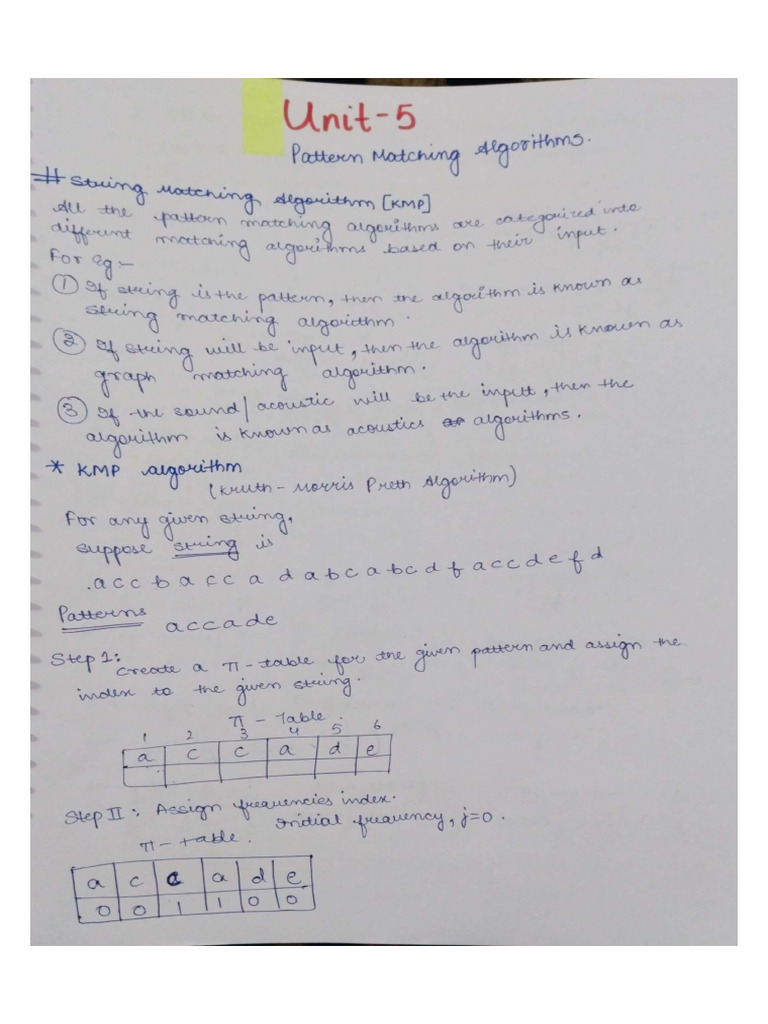 Unit-5
Pattern Matching Algorithms.
# String Matching Algorithm [KMP]
All the pattern matching algorithms are categorized into
different matching algorithms based on their input.
For eg:-
① If string is the pattern, then the algorithm is known as
string matching algorithm.
② If string will be input, then the algorithm is known as
graph matching algorithm.
③ If the sound/acoustic will be the input, then the
algorithm is known as acoustics algorithms.
* KMP algorithm
(Kruth-Morris Preth Algorithm)
For any given string,
suppose string is
.a c c b a c c a d a b c a b c d f a c c d e f d
Patterns a c c a d e
Step 1:
Create a π-table for the given pattern and assign the
index to the given string.
π - Table.
1 2 3 4 5 6
a c c a d e
Step II: Assign frequencies index.
Initial frequency, j=0.
π-table.
a c c a d e
0 0 1 1 0 0